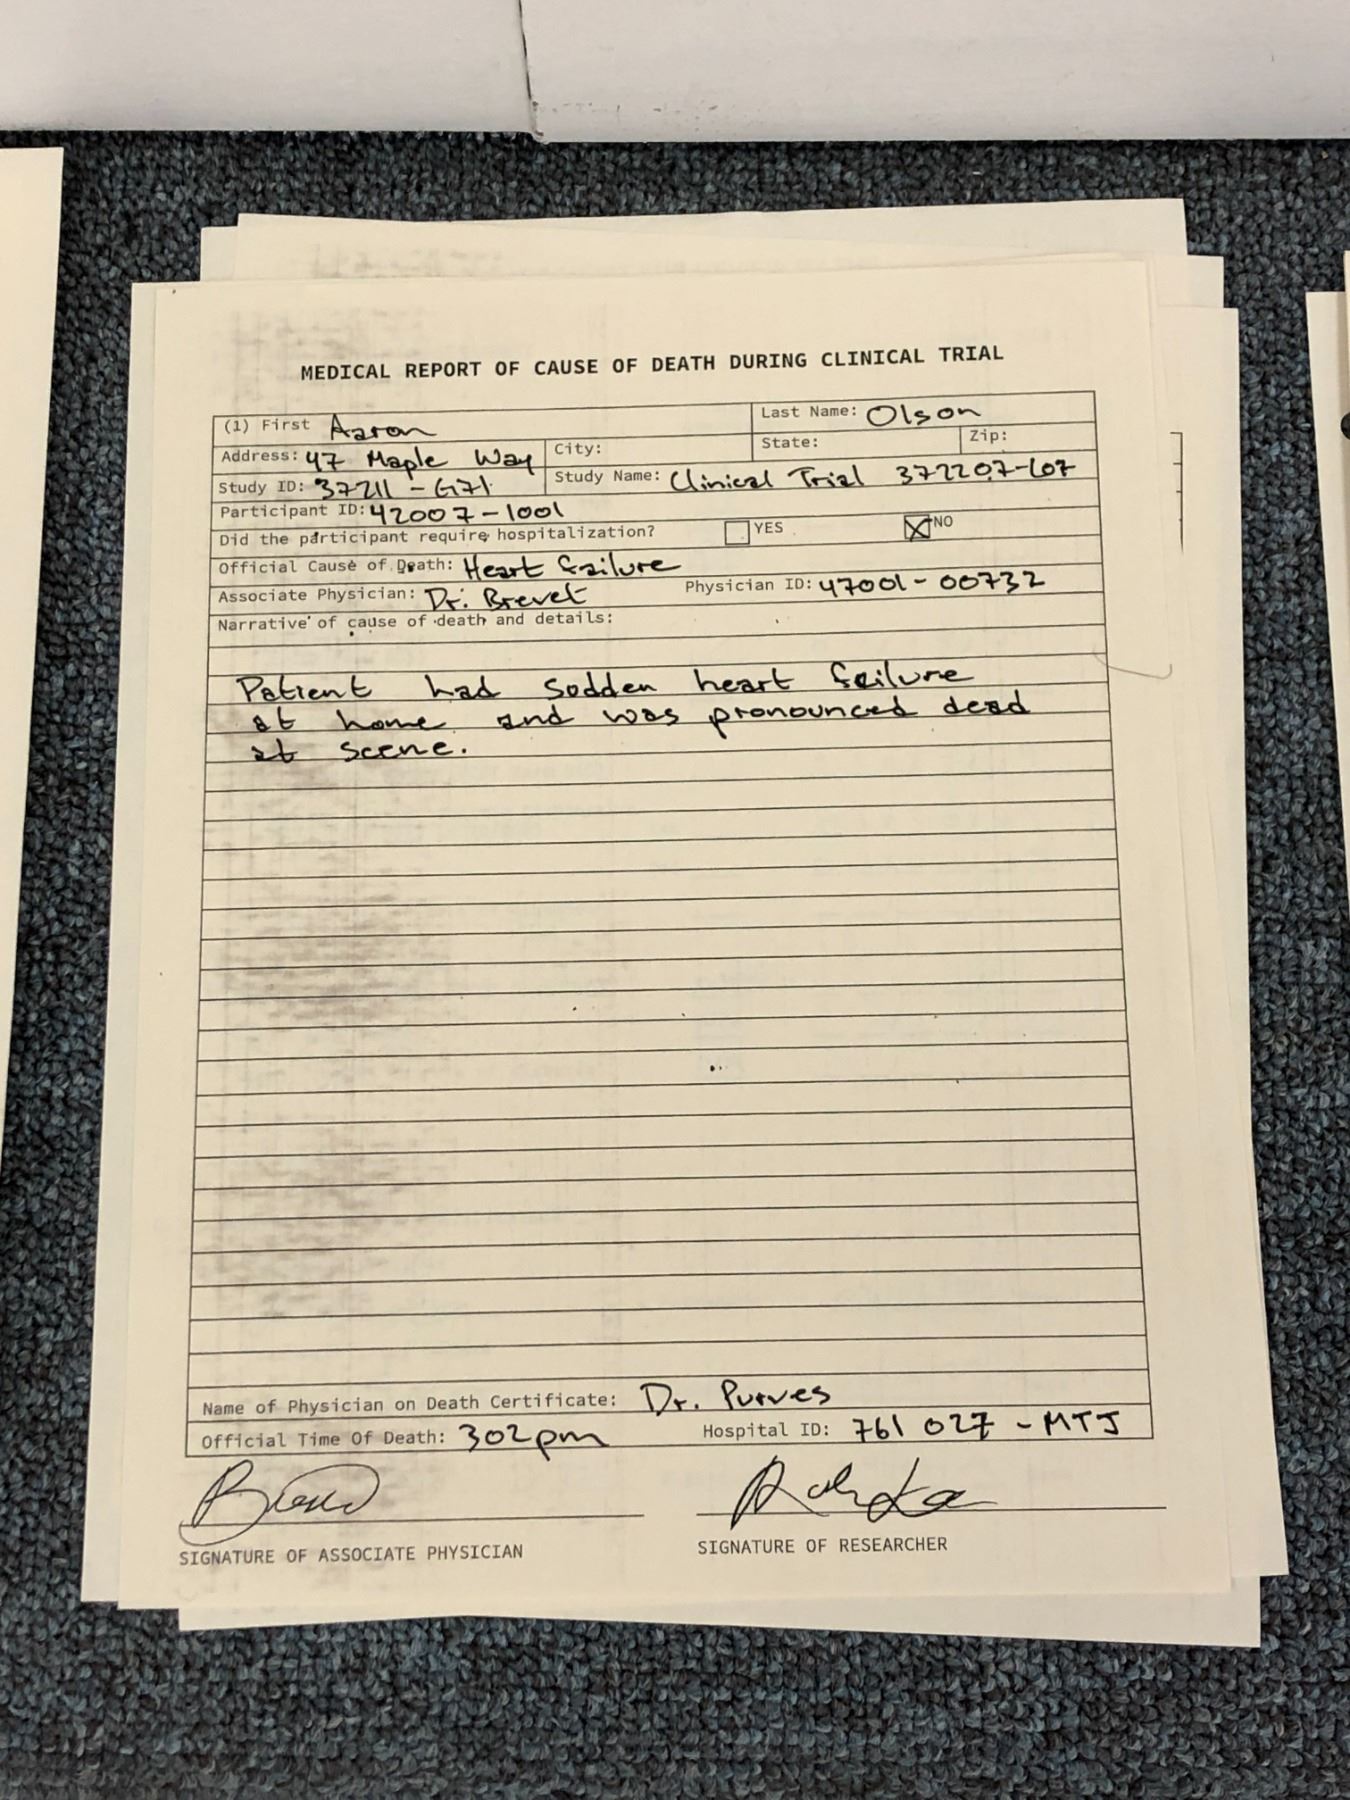 MEDICAL REPORT OF CAUSE OF DEATH DURING CLINICAL TRIAL
(1) First Aaron Last Name: Olson
Address: 47 Maple Way City: State: Zip:
Study ID: 37211-G71 Study Name: Clinical Trial 372207-L07
Participant ID: 42007-1001
Did the participant require hospitalization? YES NO
Official Cause of Death: Heart failure
Associate Physician: Dr. Brevet Physician ID: 47001-00732
Narrative of cause of death and details:
Patient had sodden heart failure
at home and was pronounced dead
at scene.
Name of Physician on Death Certificate: Dr. Purves
Official Time Of Death: 302pm Hospital ID: 761 027 - MTJ
SIGNATURE OF ASSOCIATE PHYSICIAN SIGNATURE OF RESEARCHER